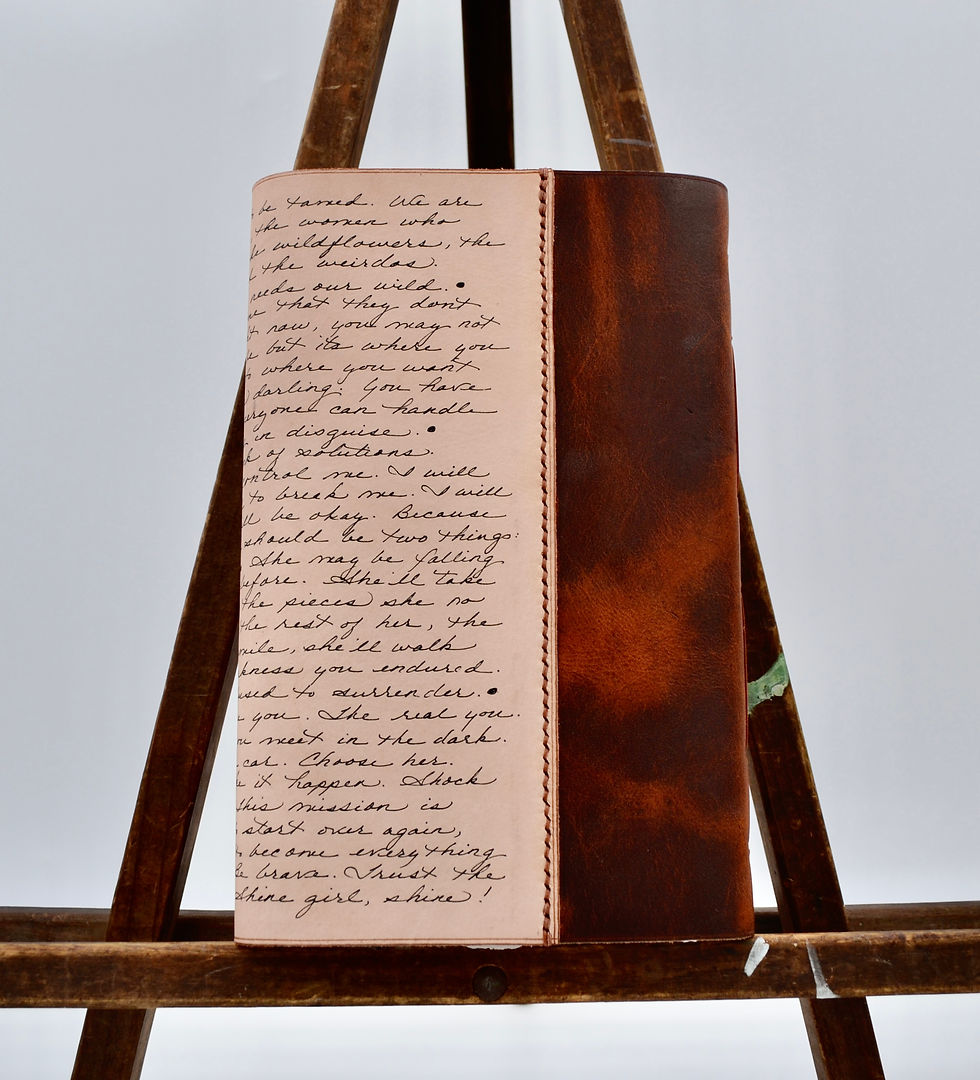 be tamed. We are
the women who
wildflowers, the
the weirdos.
needs our wild.
that they dont
raw, you may not
but its where you
where you want
darling. You have
can handle
in disguise.
of solutions.
me. I will
to break me. I will
be okay. Because
should be two things:
She may be falling
She'll take
the pieces she no
the rest of her, the
she'll walk
you endured.
to surrender.
you. The real you.
meet in the dark.
Choose her.
it happen. Shock
this mission is
start over again,
become everything
brave. Trust the
Shine girl, shine!